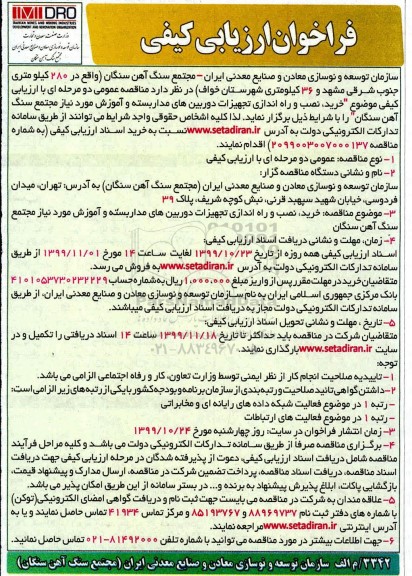 IMIDRO
IRANIAN MINES AND MINING INDUSTRIES
DEVELOPMENT AND RENOVATION ORGANIZATION
وزارت صنعت، معدن و تجارت
سازمان توسعه و نوسازی معادن و صنایع معدنی ایران
مجتمع سنگ آهن سنگان
فراخوان ارزیابی کیفی
سازمان توسعه و نوسازی معادن و صنایع معدنی ایران – مجتمع سنگ آهن سنگان (واقع در ۲۸۰ کیلومتری
جنوب شرقی مشهد و ۳۶ کیلومتری شهرستان خواف) در نظر دارد مناقصه عمومی دو مرحله ای با ارزیابی
کیفی موضوع "خرید، نصب و راه اندازی تجهیزات دوربین های مداربسته و آموزش مورد نیاز مجتمع سنگ
آهن سنگان" را با شرایط ذیل برگزار نماید. لذا کلیه اشخاص حقوقی واجد شرایط می توانند از طریق سامانه
تدارکات الکترونیکی دولت به آدرس www.setadiran.ir نسبت به خرید اسناد ارزیابی کیفی (به شماره
مناقصه ۲۰۹۹۰۰۳۰۰۷۰۰۰۱۳۷) اقدام نمایند.
۱- نوع مناقصه: عمومی دو مرحله ای با ارزیابی کیفی
۲- نام و نشانی دستگاه مناقصه گزار:
سازمان توسعه و نوسازی معادن و صنایع معدنی ایران (مجتمع سنگ آهن سنگان) به آدرس: تهران، میدان
فردوسی، خیابان شهید سپهبد قرنی، نبش کوچه شریف، پلاک ۳۹
۳- موضوع مناقصه: خرید، نصب و راه اندازی تجهیزات دوربین های مداربسته و آموزش مورد نیاز مجتمع
سنگ آهن سنگان
۴- زمان، مهلت و نشانی دریافت اسناد ارزیابی کیفی:
اسناد ارزیابی کیفی همه روزه از تاریخ ۱۳۹۹/۱۰/۲۳ لغایت ساعت ۱۴ مورخ ۱۳۹۹/۱۱/۰۱ از طریق
سامانه تدارکات الکترونیکی دولت به آدرس www.setadiran.ir به فروش می رسد.
متقاضیان خرید در مهلت مقرر پس از واریز مبلغ ۱,۰۰۰,۰۰۰ ریال به شماره حساب ۴۱۰۱۰۵۳۷۳۰۲۳۲۲۲۹
بانک مرکزی جمهوری اسلامی ایران به نام سازمان توسعه و نوسازی معادن و صنایع معدنی ایران، از طریق
سامانه تدارکات الکترونیکی دولت مجاز به دریافت اسناد ارزیابی کیفی میباشند.
۵- تاریخ، مهلت و نشانی تحویل اسناد ارزیابی کیفی:
متقاضیان شرکت در مناقصه باید حداکثر تا تاریخ ۱۳۹۹/۱۱/۱۸ ساعت ۱۴ اسناد دریافتی را تکمیل و در
سایت www.setadiran.ir بارگذاری نمایند.
توجه:
۱- تاییدیه صلاحیت انجام کار از نظر ایمنی توسط وزارت تعاون، کار و رفاه اجتماعی الزامی می باشد.
۲- داشتن گواهی تائید صلاحیت و رتبه بندی از سازمان برنامه و بودجه کشور با یکی از رتبه های زیر الزامی است:
- رتبه ۱ در موضوع فعالیت شبکه داده های رایانه ای و مخابراتی
- رتبه ۱ در موضوع فعالیت های ارتباطات
۳- زمان انتشار فراخوان در سایت: روز چهارشنبه مورخ ۱۳۹۹/۱۰/۲۴
۴- برگزاری مناقصه صرفا از طریق سامانه تدارکات الکترونیکی دولت می باشد و کلیه مراحل فرآیند
مناقصه شامل دریافت اسناد ارزیابی کیفی، دعوت از پذیرفته شدگان در مرحله ارزیابی کیفی جهت دریافت
اسناد مناقصه، دریافت اسناد مناقصه، پرداخت تضمین شرکت در مناقصه، ارسال مدارک و پیشنهاد قیمت،
بازگشایی پاکات، ابلاغ پذیرش پیشنهاد به برنده و... در بستر سامانه از این طریق امکان پذیر می باشد.
۵- علاقه مندان به شرکت در مناقصه می بایست جهت ثبت نام و دریافت گواهی امضای الکترونیکی (توکن)
با شماره های دفتر ثبت نام ۸۸۹۶۹۷۳۷ و ۸۵۱۹۳۷۶۷ و مرکز تماس ۴۱۹۳۴ تماس حاصل نمایند و یا به
آدرس اینترنتی www.setadiran.ir مراجعه نمایند.
۶- جهت اطلاعات بیشتر در مورد مناقصه می توانید با شماره تلفن ۸۱۴۹۲۰۰۰-۰۲۱ تماس حاصل نمایید.
۳۳۴۲/م الف سازمان توسعه و نوسازی معادن و صنایع معدنی ایران (مجتمع سنگ آهن سنگان)